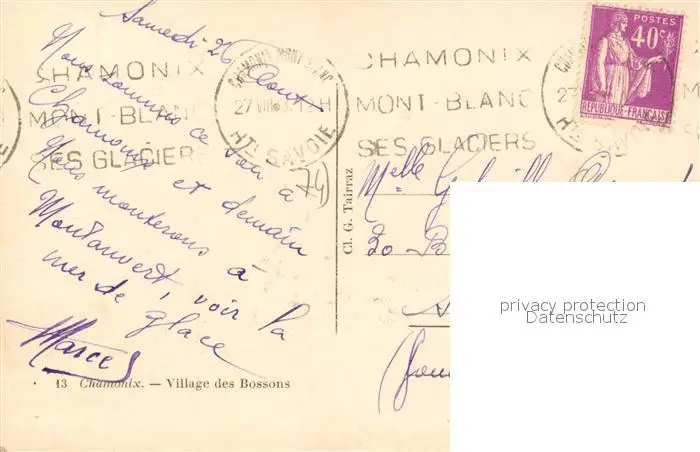 Samedi 26 Aout
Nous sommes ce soir à
Chamonix et demain
Nous monterons à
Montanvert voir la
mer de glace
Marcel
CHAMONIX
MONT-BLANC
SES GLACIERS
CHAMONIX MONT-BLANC
27 VIII
H
Hte SAVOIE
(74)
CHAMONIX
MONT-BLANC
SES GLACIERS
POSTES
40c
REPUBLIQUE-FRANÇAISE
27
Hte SAVOIE
Melle
30 B
Cl. G. Tairraz
13 Chamonix. — Village des Bossons
privacy protection
Datenschutz